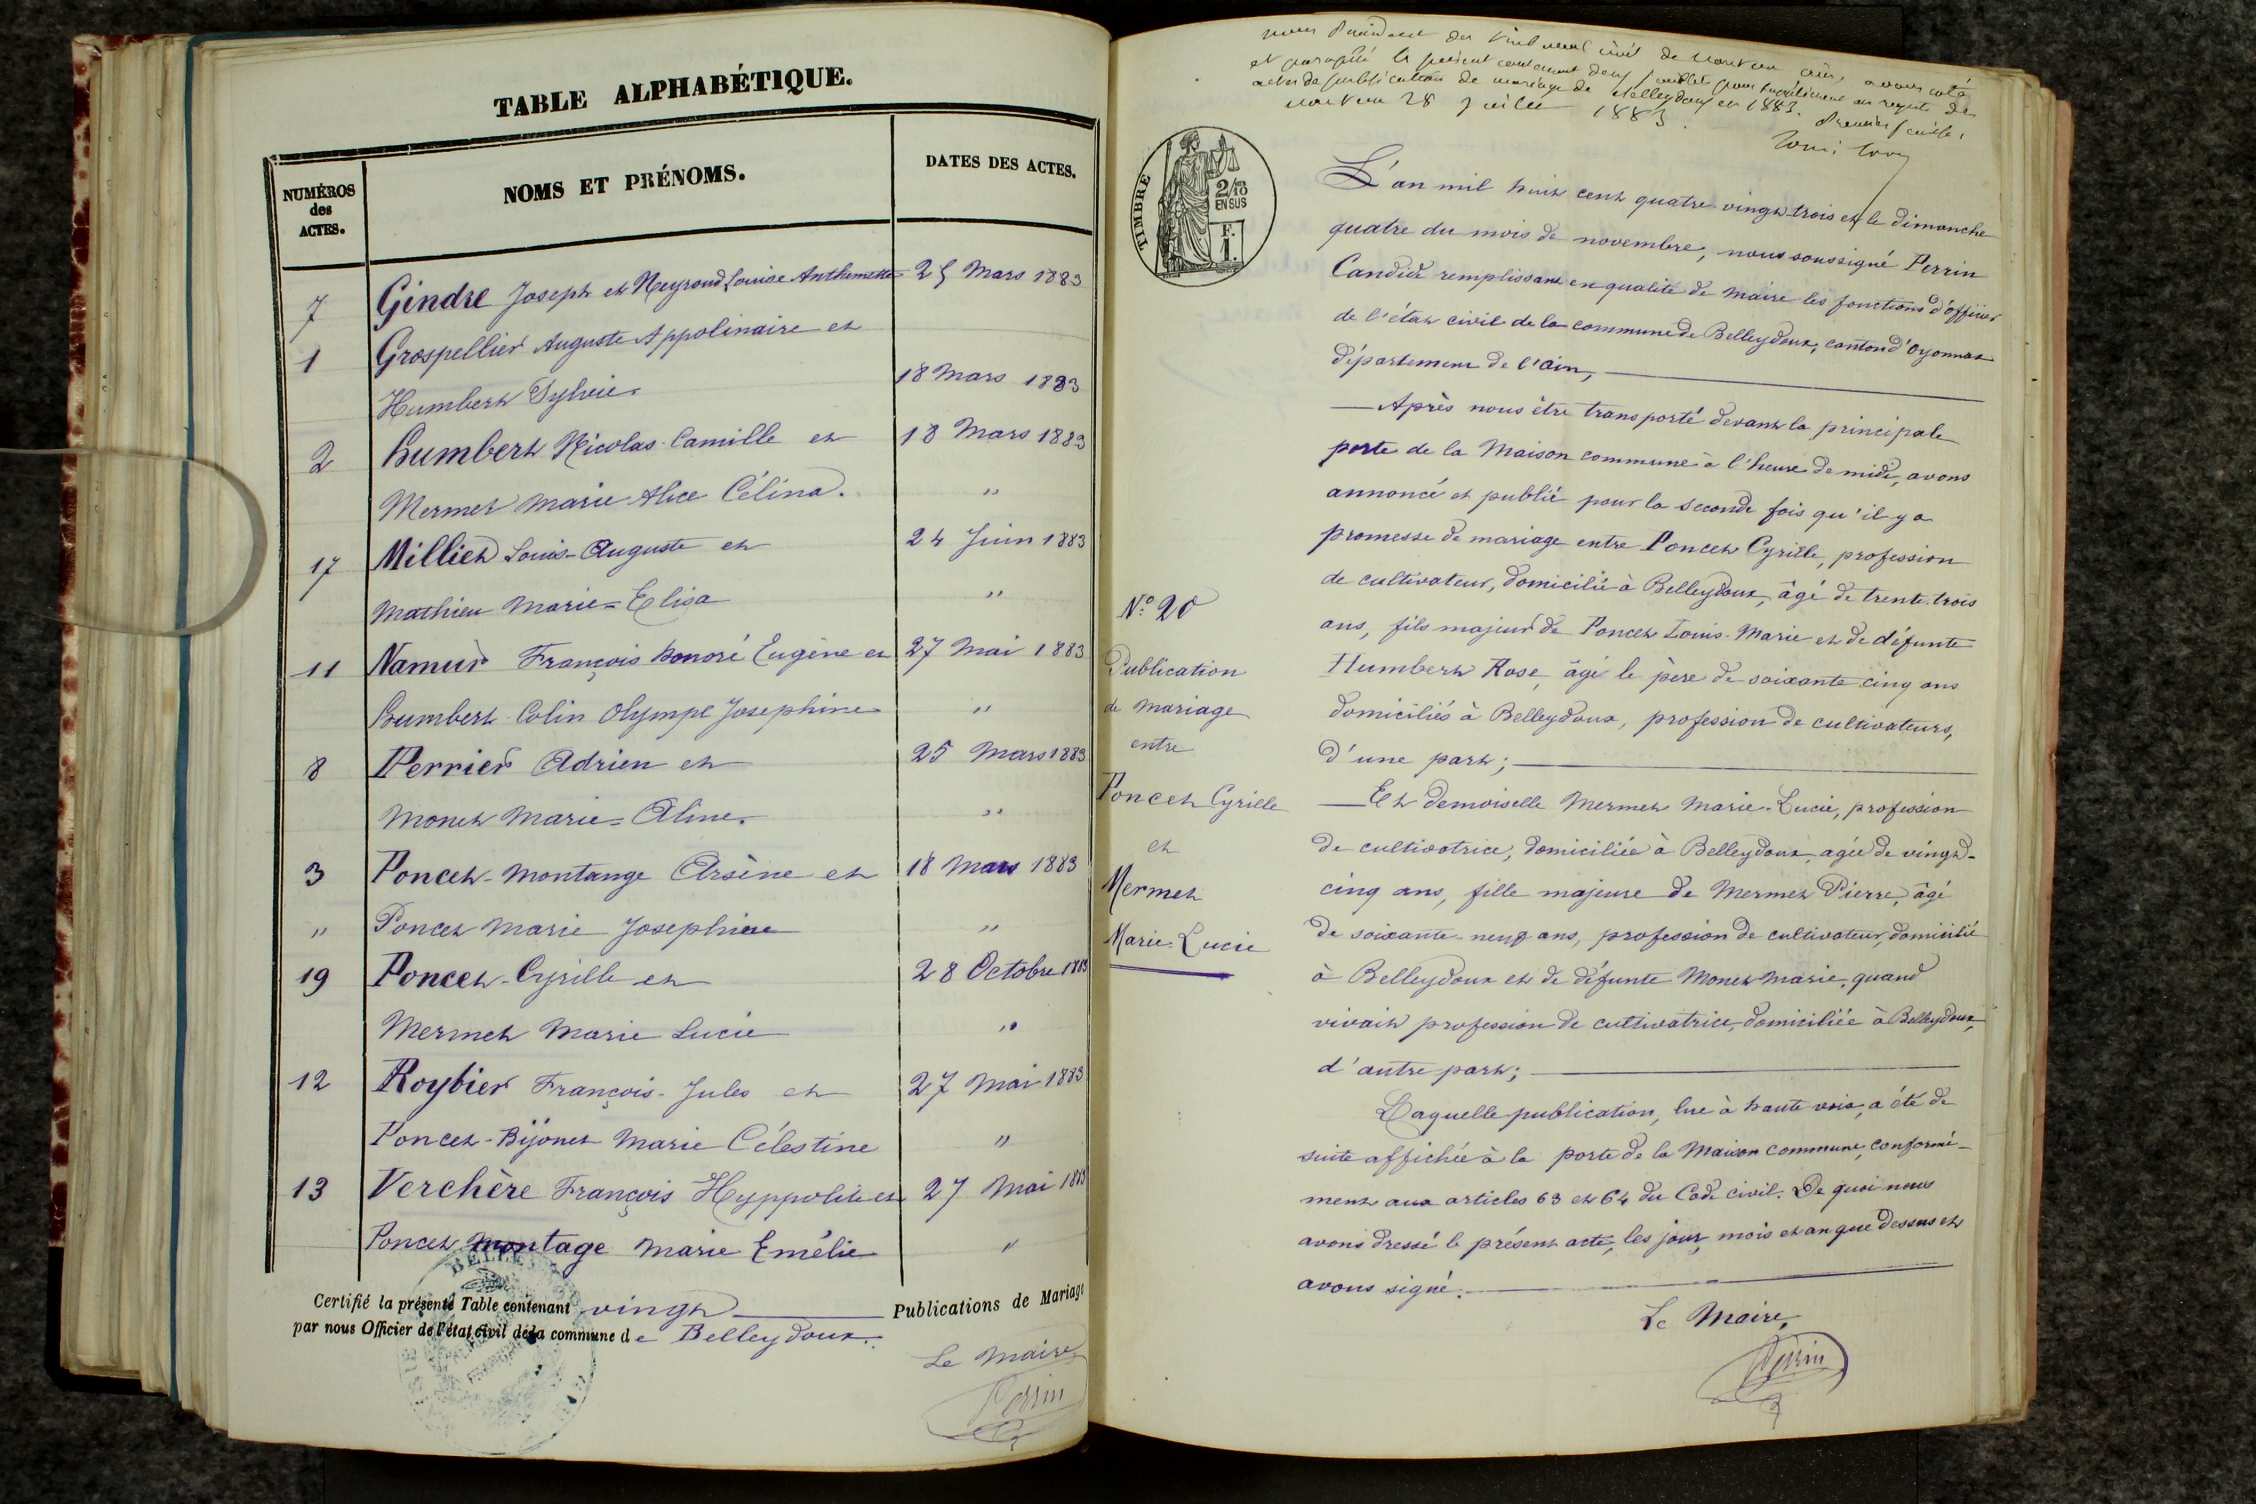 TABLE ALPHABÉTIQUE.
NUMÉROS des ACTES.
NOMS ET PRÉNOMS.
DATES DES ACTES.
7 Gindre Joseph et Neyroud Louise Anthemette 25 Mars 1883
1 Grospellier Auguste Appolinaire et
Humbert Sylvie. 18 Mars 1883
2 Humbert Nicolas-Camille et 18 Mars 1883
Mermet Marie Alice Célina. "
17 Milliet Louis-Auguste et 24 Juin 1883
Mathieu Marie=Elisa "
11 Namur François honoré Eugène et 27 Mai 1883
Humbert-Colin Olympe Josephine "
8 Perrier Adrien et 25 Mars 1883
Monet Marie=Aline. "
3 Poncet-Montange Arsène et 18 Mars 1883
" Poncet Marie Josephine "
19 Poncet-Cyrille et 28 Octobre 1883
Mermet Marie Lucie "
12 Roybier François-Jules et 27 Mai 1883
Poncet-Bijonet Marie Célestine "
13 Verchère François Hyppolite et 27 Mai 1883
Poncet montage Marie Emélie "
Certifié la présente Table contenant vingt Publications de Mariage
par nous Officier de l'état civil de la commune de Belleydoux.
Le Maire
Perrin
nous Président du tribunal civil de Nantua ain, avons coté
et paraphé le présent contenant deux feuillets pour supplément au registre des
actes de publication de mariage de Belleydoux en 1883.
Nantua 28 Juillet 1883. Premier feuillet
TIMBRE
2/10 EN SUS
F. 1.
L'an mil huit cent quatre vingt-trois et le dimanche
quatre du mois de novembre, nous soussigné Perrin
Candide remplissant en qualité de maire les fonctions d'officier
de l'état civil de la commune de Belleydoux, canton d'Oyonnax
département de l'Ain,
Après nous être transporté devant la principale
porte de la Maison commune à l'heure de midi, avons
annoncé et publié pour la seconde fois qu'il y a
promesse de mariage entre Poncet Cyrille, profession
de cultivateur, domicilié à Belleydoux, âgé de trente-trois
ans, fils majeur de Poncet Louis-Marie et de défunte
Humbert Rose, âgé le père de soixante cinq ans
domiciliés à Belleydoux, profession de cultivateurs,
d'une part;
Et demoiselle Mermet Marie-Lucie, profession
de cultivatrice, domiciliée à Belleydoux, agée de vingt-
cinq ans, fille majeure de Mermet Pierre, âgé
de soixante-neuf ans, profession de cultivateur, domicilié
à Belleydoux et de défunte Monet Marie, quand
vivait profession de cultivatrice, domiciliée à Belleydoux,
d'autre part;
Laquelle publication, lue à haute voix, a été de
suite affichée à la porte de la Maison commune, conformé-
ment aux articles 63 et 64 du Code civil. De quoi nous
avons dressé le présent acte, les jour, mois et an que dessus et
avons signé.
Le Maire,
Perrin
N.° 20
Publication
de mariage
entre
Poncet Cyrille
et
Mermet
Marie-Lucie